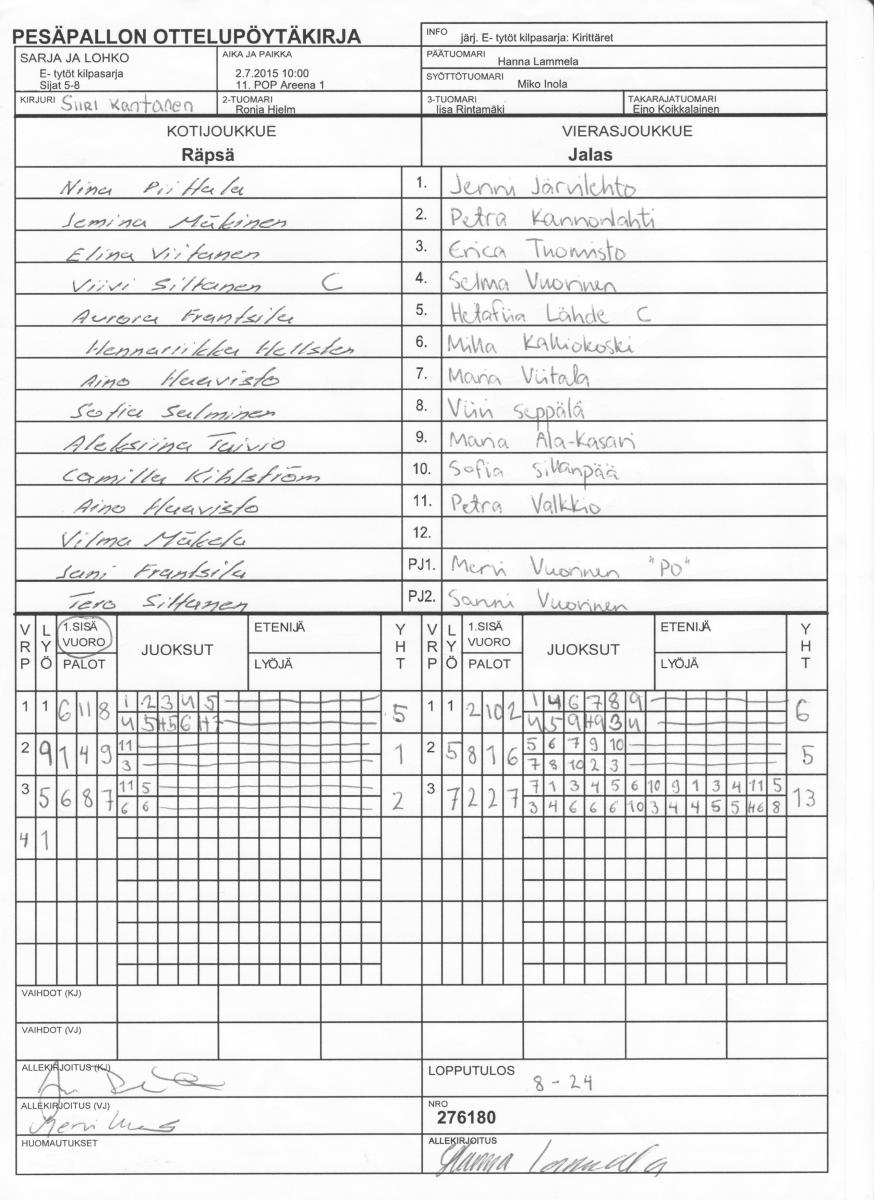 PESÄPALLON OTTELUPÖYTÄKIRJA
INFO järj. E- tytöt kilpasarja: Kirittäret
SARJA JA LOHKO
E- tytöt kilpasarja
Sijat 5-8
AIKA JA PAIKKA
2.7.2015 10:00
11. POP Areena 1
PÄÄTUOMARI
Hanna Lammela
SYÖTTÖTUOMARI
Miko Inola
KIRJURI Siiri Kantanen
2-TUOMARI
Ronja Hjelm
3-TUOMARI
Iisa Rintamäki
TAKARAJATUOMARI
Eino Koikkalainen
KOTIJOUKKUE VIERASJOUKKUE
Räpsä Jalas
Nina Piittala 1. Jenni Järvilehto
Jemina Mäkinen 2. Petra Kannonlahti
Elina Viitanen 3. Erica Tuomisto
Viivi Siltanen C 4. Selma Vuorinen
Aurora Frantsila 5. Hetafiia Lähde C
Hennariikka Hellsten 6. Milla Kalliokoski
Aino Haavisto 7. Maria Viitala
Sofia Salminen 8. Viivi Seppälä
Aleksiina Taivio 9. Maria Ala-Kasari
Camilla Kihlström 10. Sofia Sillanpää
Aino Haavisto 11. Petra Valkkio
Vilma Mäkelä 12.
Jani Frantsila PJ1. Mervi Vuorinen "PO"
Tero Siltanen PJ2. Sanni Vuorinen
VRP LYÖ 1.SISÄ VUORO PALOT JUOKSUT ETENIJÄ LYÖJÄ YHT VRP LYÖ 1.SISÄ VUORO PALOT JUOKSUT ETENIJÄ LYÖJÄ YHT
1 1 6 11 8 1 2 3 4 5 5 1 1 2 10 2 1 4 6 7 8 9 6
4 5 +5 6 +7 4 5 9 +9 3 4
2 9 1 4 9 11 1 2 5 8 1 6 5 6 7 9 10 5
3 7 8 10 2 3
3 5 6 8 7 11 5 2 3 7 2 2 7 7 1 3 4 5 6 10 9 1 3 4 11 5 13
6 6 3 4 6 6 6 10 3 4 4 5 5 +6 8
4 1
VAIHDOT (KJ)
VAIHDOT (VJ)
ALLEKIRJOITUS (KJ)
LOPPUTULOS
8 - 24
ALLEKIRJOITUS (VJ)
NRO
276180
HUOMAUTUKSET
ALLEKIRJOITUS
Hanna Lammela